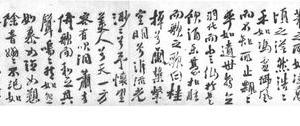 頃之茫然浩浩
乎如馮虛御風
而不知所止飄飄
乎如遺世獨立
羽化而登仙於是
飲酒樂甚扣舷
而歌之歌曰桂
棹兮蘭槳擊
空明兮泝流光
渺渺兮予懷望
美人兮天一方
客有吹洞簫
倚歌而和之其
聲嗚嗚然如怨
如慕如泣如訴
餘音嫋嫋不絕如